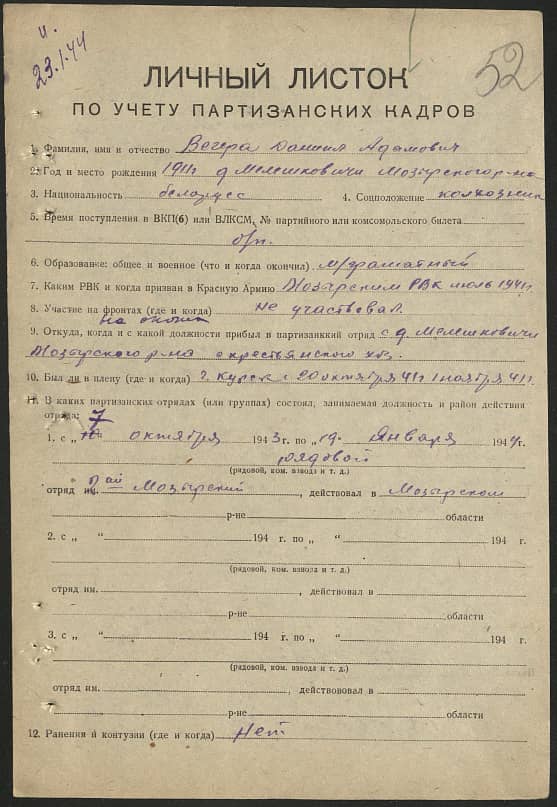 и.
23.1.44
52
ЛИЧНЫЙ ЛИСТОК
ПО УЧЕТУ ПАРТИЗАНСКИХ КАДРОВ
1. Фамилия, имя и отчество Вегера Даниил Адамович
2. Год и место рождения 1911г д. Мелешковичи Мозырского р-на
3. Национальность белорусс 4. Соцположение колхозник
5. Время поступления в ВКП(б) или ВЛКСМ, № партийного или комсомольского билета
б/п.
6. Образование: общее и военное (что и когда окончил) м/грамотный
7. Каким РВК и когда призван в Красную Армию Мозырским РВК июль 1941г.
8. Участие на фронтах (где и когда) не участвовал.
9. Откуда, когда и с какой должности прибыл в партизанкий отряд с д. Мелешковичи
Мозырского р-на с крестьянского хоз.
10. Был ли в плену (где и когда) г. Курск с 20 октября 41г 1 ноября 41г.
11. В каких партизанских отрядах (или группах) состоял, занимаемая должность и район действия
отряда: 7
1. с „ “ октября 1943 г. по „19“ Января 1944г.
рядовой
(рядовой, ком. взвода и т. д.)
отряд им. Мозырский, действовал в Мозырском
р-не области
2. с „ “ 194 г. по „ “ 194 г.
(рядовой, ком. взвода и т. д.)
отряд им. , действовал в
р-не области
3. с „ “ 194 г. по „ “ 194 г.
(рядовой, ком. взвода и т. д.)
отряд им. , действововал в
р-не области
12. Ранения и контузии (где и когда) Нет